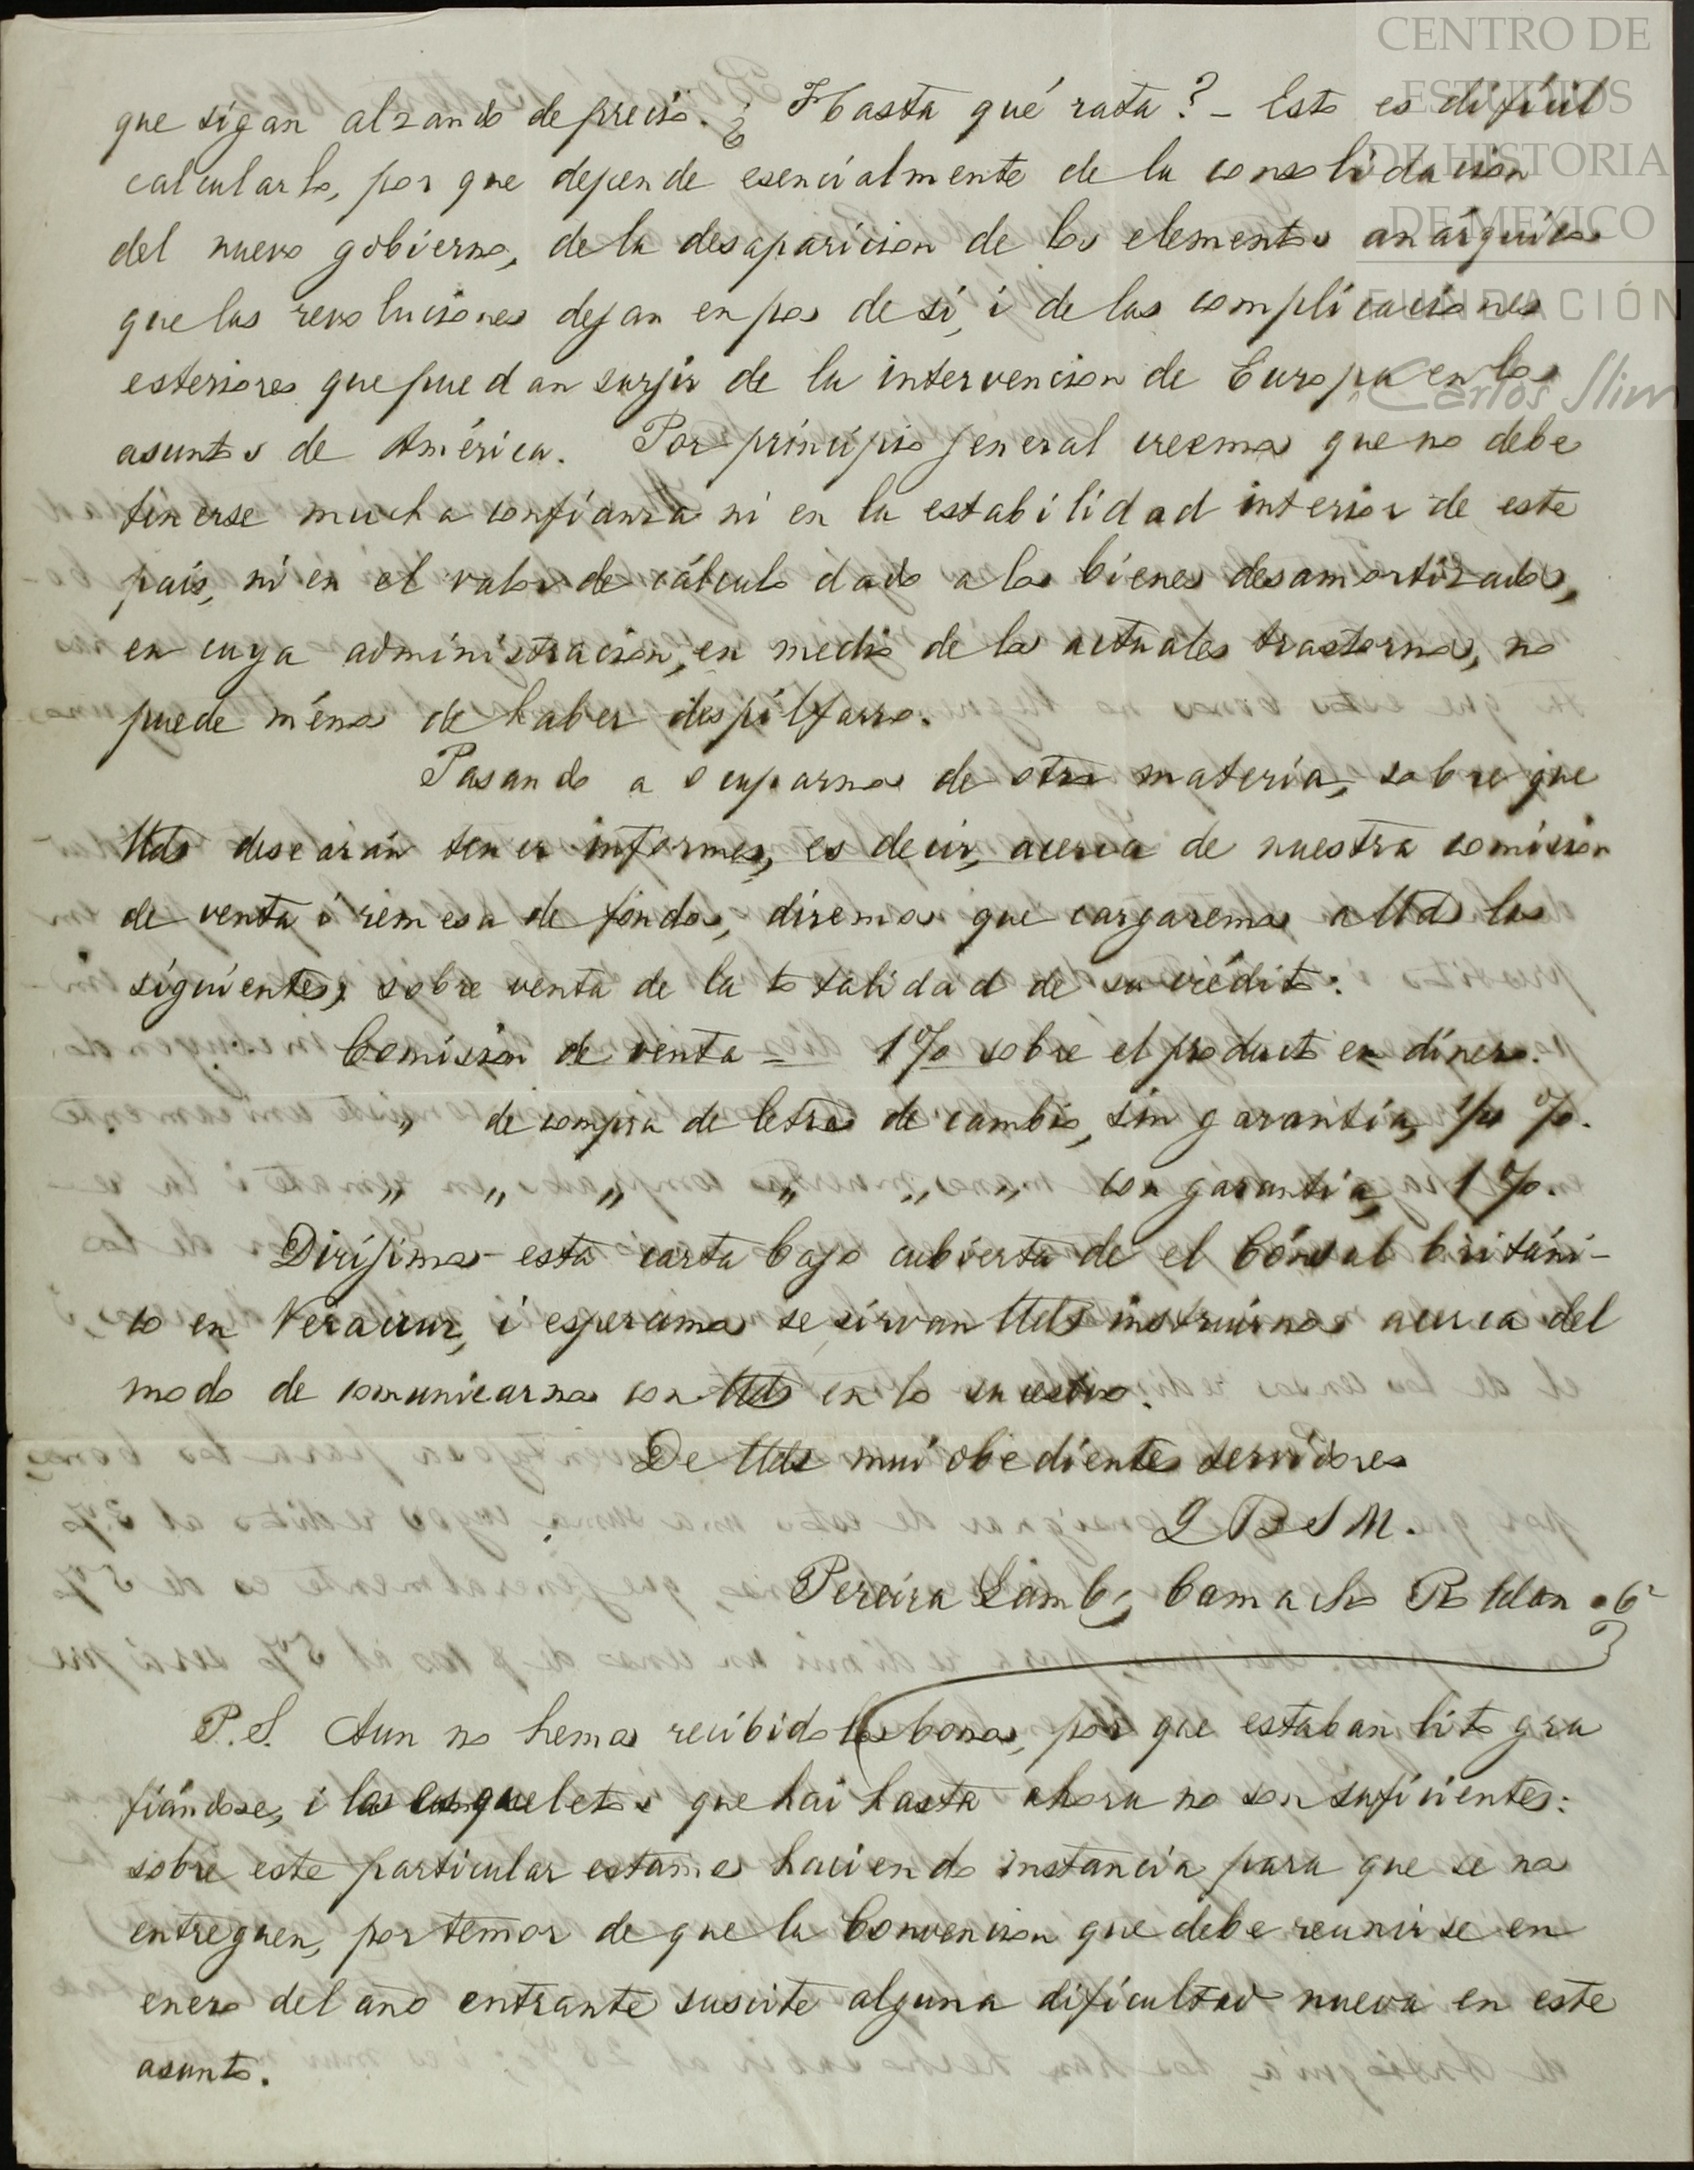 CENTRO DE
ESTUDIOS
DE HISTORIA
DE MÉXICO
FUNDACIÓN
Carlos Slim
que sigan alzando de precio. ¿Hasta qué rata? - Esto es difícil
calcularlo, por que depende esencialmente de la consolidacion
del nuevo gobierno, de la desaparicion de los elementos anárquicos
que las revoluciones dejan en pos de sí, i de las complicaciones
esteriores que puedan surjir de la intervencion de Europa en los
asuntos de América. Por principio jeneral creemos que no debe
tenerse mucha confianza ni en la estabilidad interior de este
país, ni en el valor de cálculo dado a los bienes desamortizados,
en cuya administracion, en medio de los actuales trastornos, no
puede ménos de haber despilfarro.
Pasando a ocuparnos de otra materia, sobre que
Uds desearán tener informes, es decir, acerca de nuestra comision
de venta i remesa de fondos, diremos que cargaremos a Uds las
siguientes, sobre venta de la totalidad de su crédito:
Comision de venta = 1% sobre el producto en dinero.
" de compra de letras de cambio, sin garantía, ½ %.
" " " " " " con garantía, 1%.
Dirijimos esta carta bajo cubierta de el Cónsul británi-
co en Veracruz, i esperamos se sirvan Uds instruirnos acerca del
modo de comunicarnos con Uds en lo sucesivo.
De Uds mui obedientes servidores
Q B S M.
Pereira Gamba, Camacho Roldan & Cª
P.S. Aun no hemos recibido los bonos, por que estaban litogra
fiándose, i los esqueletos que hai hasta ahora no son suficientes:
sobre este particular estamos haciendo instancia para que se nos
entreguen, por temor de que la Convencion que debe reunirse en
enero del año entrante suscite alguna dificultad nueva en este
asunto.